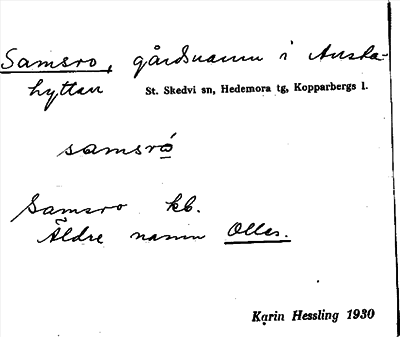 Samsro, gårdsnamn i Anska-
hyttan St. Skedvi sn, Hedemora tg, Kopparbergs l.
samsró
Samsro kb.
Äldre namn Olles.
Karin Hessling 1930